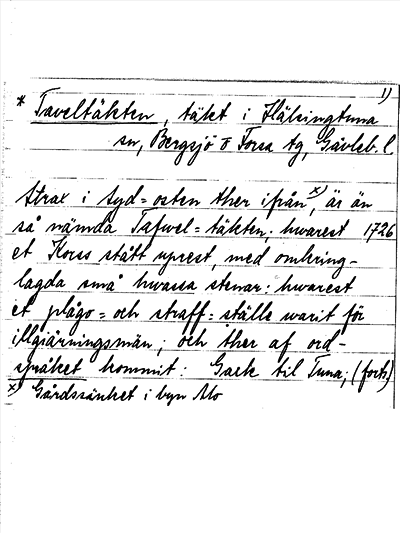 1)
* Taveltäkten, täkt i Hälsingtuna
sn, Bergsjö o Forsa tg, Gävleb. l.
Strax i syd=osten ther ifrån x), är än
så nämda Tafwel=täkten; hwarest 1726
et Korss stått uprest, med omkring-
lagda små hwassa stenar: hwarest
et plågo=och straff=ställe warit för
illgiärningsmän; och ther af ord-
språket kommit: Gack til Tuna; (forts)
x) Gårdssänket i byn Mo